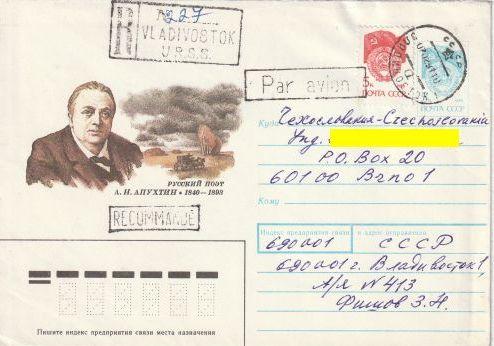 R № 227
VLADIVOSTOK
U.R.S.S.
Par avion
RECOMMANDÉ
РУССКИЙ ПОЭТ
А. Н. АПУХТИН • 1840—1893
5к
ПОЧТА СССР
ПОЧТА СССР
Куда Чехословакия-Czechoslovania
Ing.
P.O. Box 20
60100 Brno 1
Кому
Индекс предприятия связи и адрес отправителя
690001 СССР
690001 г. Владивосток 1,
А/я №413
Фишов З.Н.
Пишите индекс предприятия связи места назначения